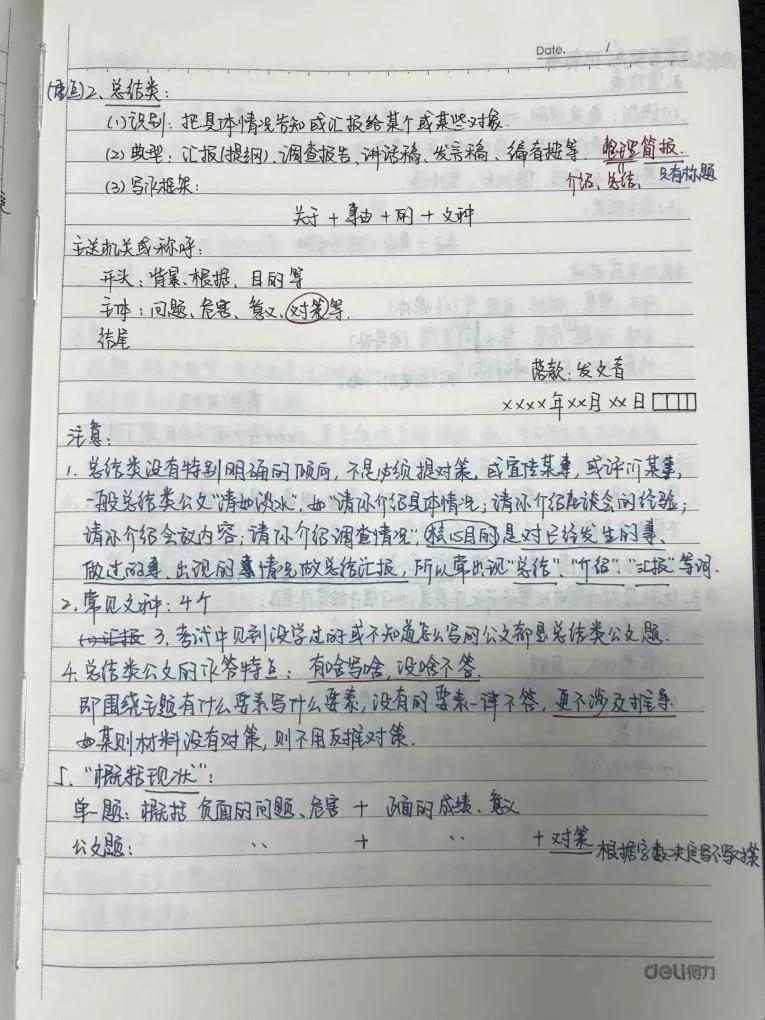 Date. /
(重点)2、总结类:
(1)识别: 把具体情况告知或汇报给某个或某些对象.
(2)典型: 汇报(提纲)、调查报告、讲话稿、发言稿、编者按等. 整理简报.
介绍、总结、 只有标题
(3)写作框架:
关于 + 事由 + 的 + 文种
主送机关或称呼:
开头: 背景、根据、目的等
主体: 问题、危害、意义、对策等.
结尾
落款: 发文者
xxxx年xx月xx日
注意:
1. 总结类没有特别明确的倾向, 不是必须提对策, 或宣传某事, 或评价某事,
一般总结类公文"清如淡水", 如"请你介绍具体情况; 请你介绍座谈会的经验;
请你介绍会议内容; 请你介绍调查情况"; 核心目的是对已经发生的事、
做过的事、出现的事情况做总结汇报, 所以常出现"总结"、"介绍"、"汇报"等词.
2. 常见文种: 4个
(1)汇报 3. 考试中见到没学过的或不知道怎么写的公文都是总结类公文题.
4. 总结类公文的作答特点: 有啥写啥, 没啥不答.
即围绕主题有什么要素写什么要素, 没有的要素一律不答, 更不涉及推导.
如某则材料没有对策, 则不用反推对策.
5. "概括现状":
单一题: 概括 负面的问题、危害 + 正面的成绩、意义
公文题: 〃 + 〃 + 对策 根据字数决定写不写对策
deli得力